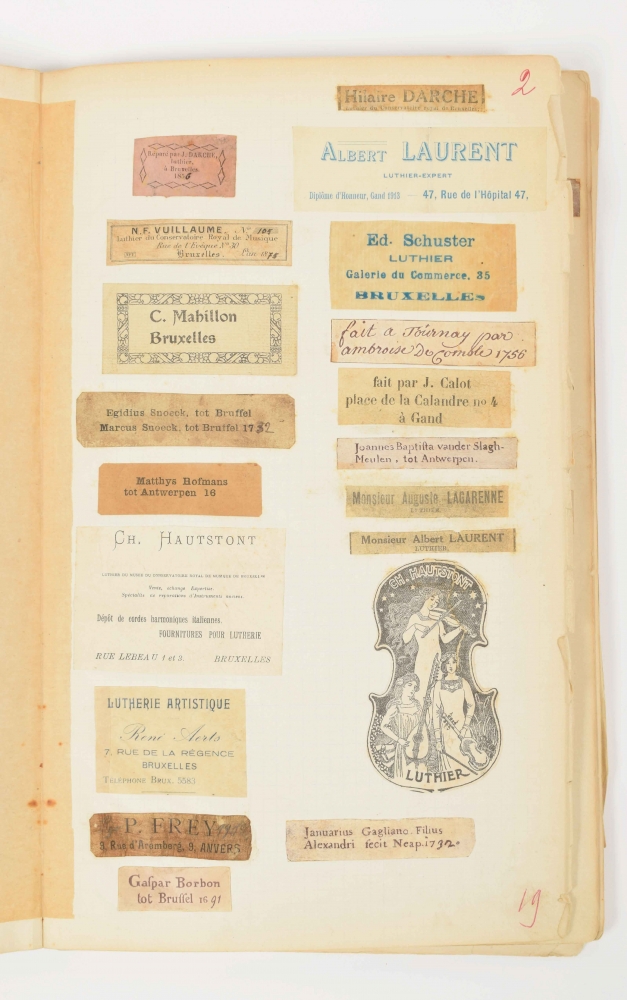 2
Hilaire DARCHE
Réparé par J. DARCHE,
luthier,
à Bruxelles
ALBERT LAURENT
LUTHIER-EXPERT
Diplôme d'Honneur, Gand 1913 — 47, Rue de l'Hôpital 47,
N. F. VUILLAUME.
Luthier du Conservatoire Royal de Musique
Rue de l'Evêque N° 30
Bruxelles.
Ed. Schuster
LUTHIER
Galerie du Commerce, 35
BRUXELLES
C. Mahillon
Bruxelles
fait a Tournay par
ambroise De Comble 1756
fait par J. Calot
place de la Calandre no 4
à Gand
Egidius Snoeck, tot Brussel
Marcus Snoeck, tot Brussel 1732
Joannes Baptista vander Slagh-
Meulen, tot Antwerpen.
Matthys Hofmans
tot Antwerpen 16
Monsieur Auguste LAGARENNE
Monsieur Albert LAURENT
LUTHIER
CH. HAUTSTONT
Dépôt de cordes harmoniques italiennes.
FOURNITURES POUR LUTHERIE
RUE LEBEAU 1 et 3. BRUXELLES
CH. HAUTSTONT
LUTHIER
LUTHERIE ARTISTIQUE
René Aerts
7, RUE DE LA RÉGENCE
BRUXELLES
TÉLÉPHONE BRUX. 5583
P. FREY
9, Rue d'Aremberg, 9, ANVERS
Januarius Gagliano Filius
Alexandri fecit Neap. 1732.
Gaspar Borbon
tot Brussel 1691
19